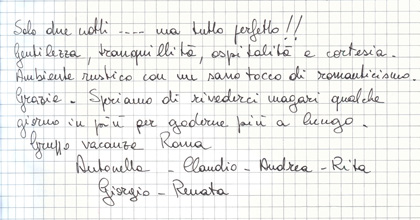 Solo due notti .... ma tutto perfetto!!
Gentilezza, tranquillità, ospitalità e cortesia.
Ambiente rustico con un sano tocco di romanticismo.
Grazie. Speriamo di rivederci magari qualche
giorno in più per goderne più a lungo.
Gruppo vacanze Roma
Antonella - Claudio - Andrea - Rita
Giorgio - Renata